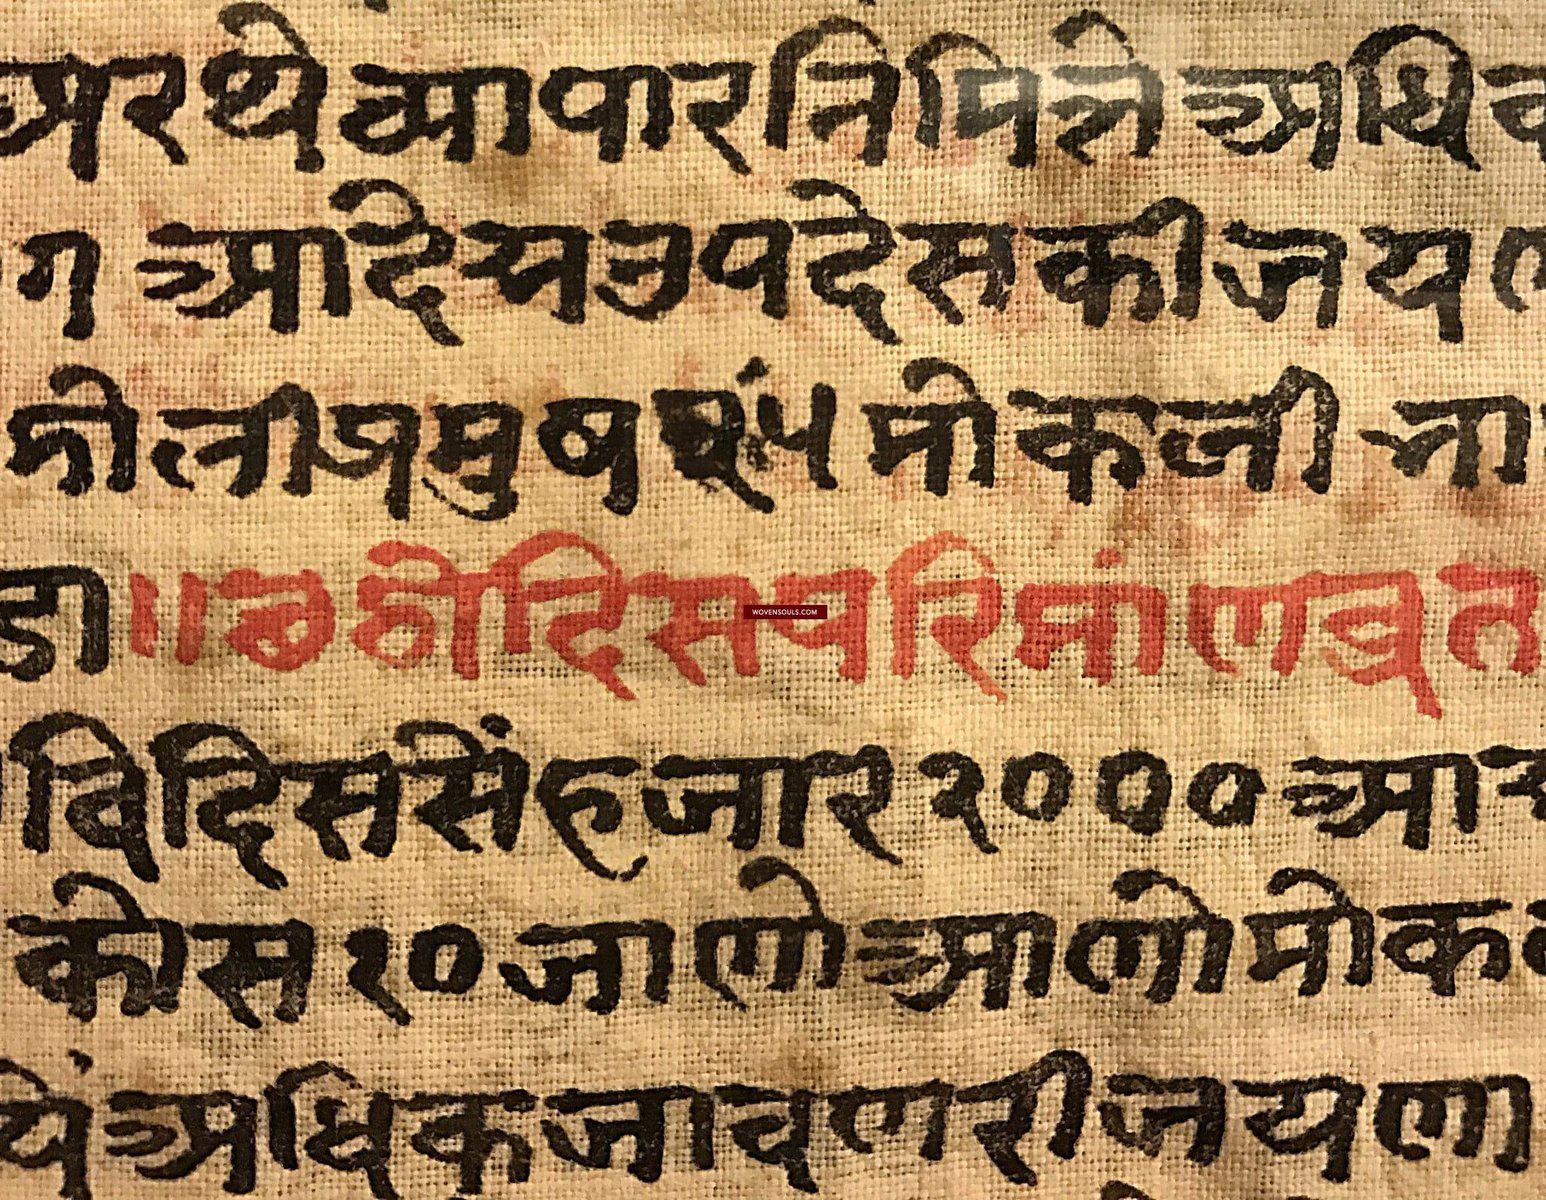 अरथे व्यापारनिमित्ते अधिक
ग आदेय उपदेस की जयण
मोकली ना
डा ॥ छठो दिस परिमांण व्रत
विदिससें हजार २००० आ
कोस १० जाणो आणो मोकल
यें अधिक जावण री जयणा
WOVENSOULS.COM